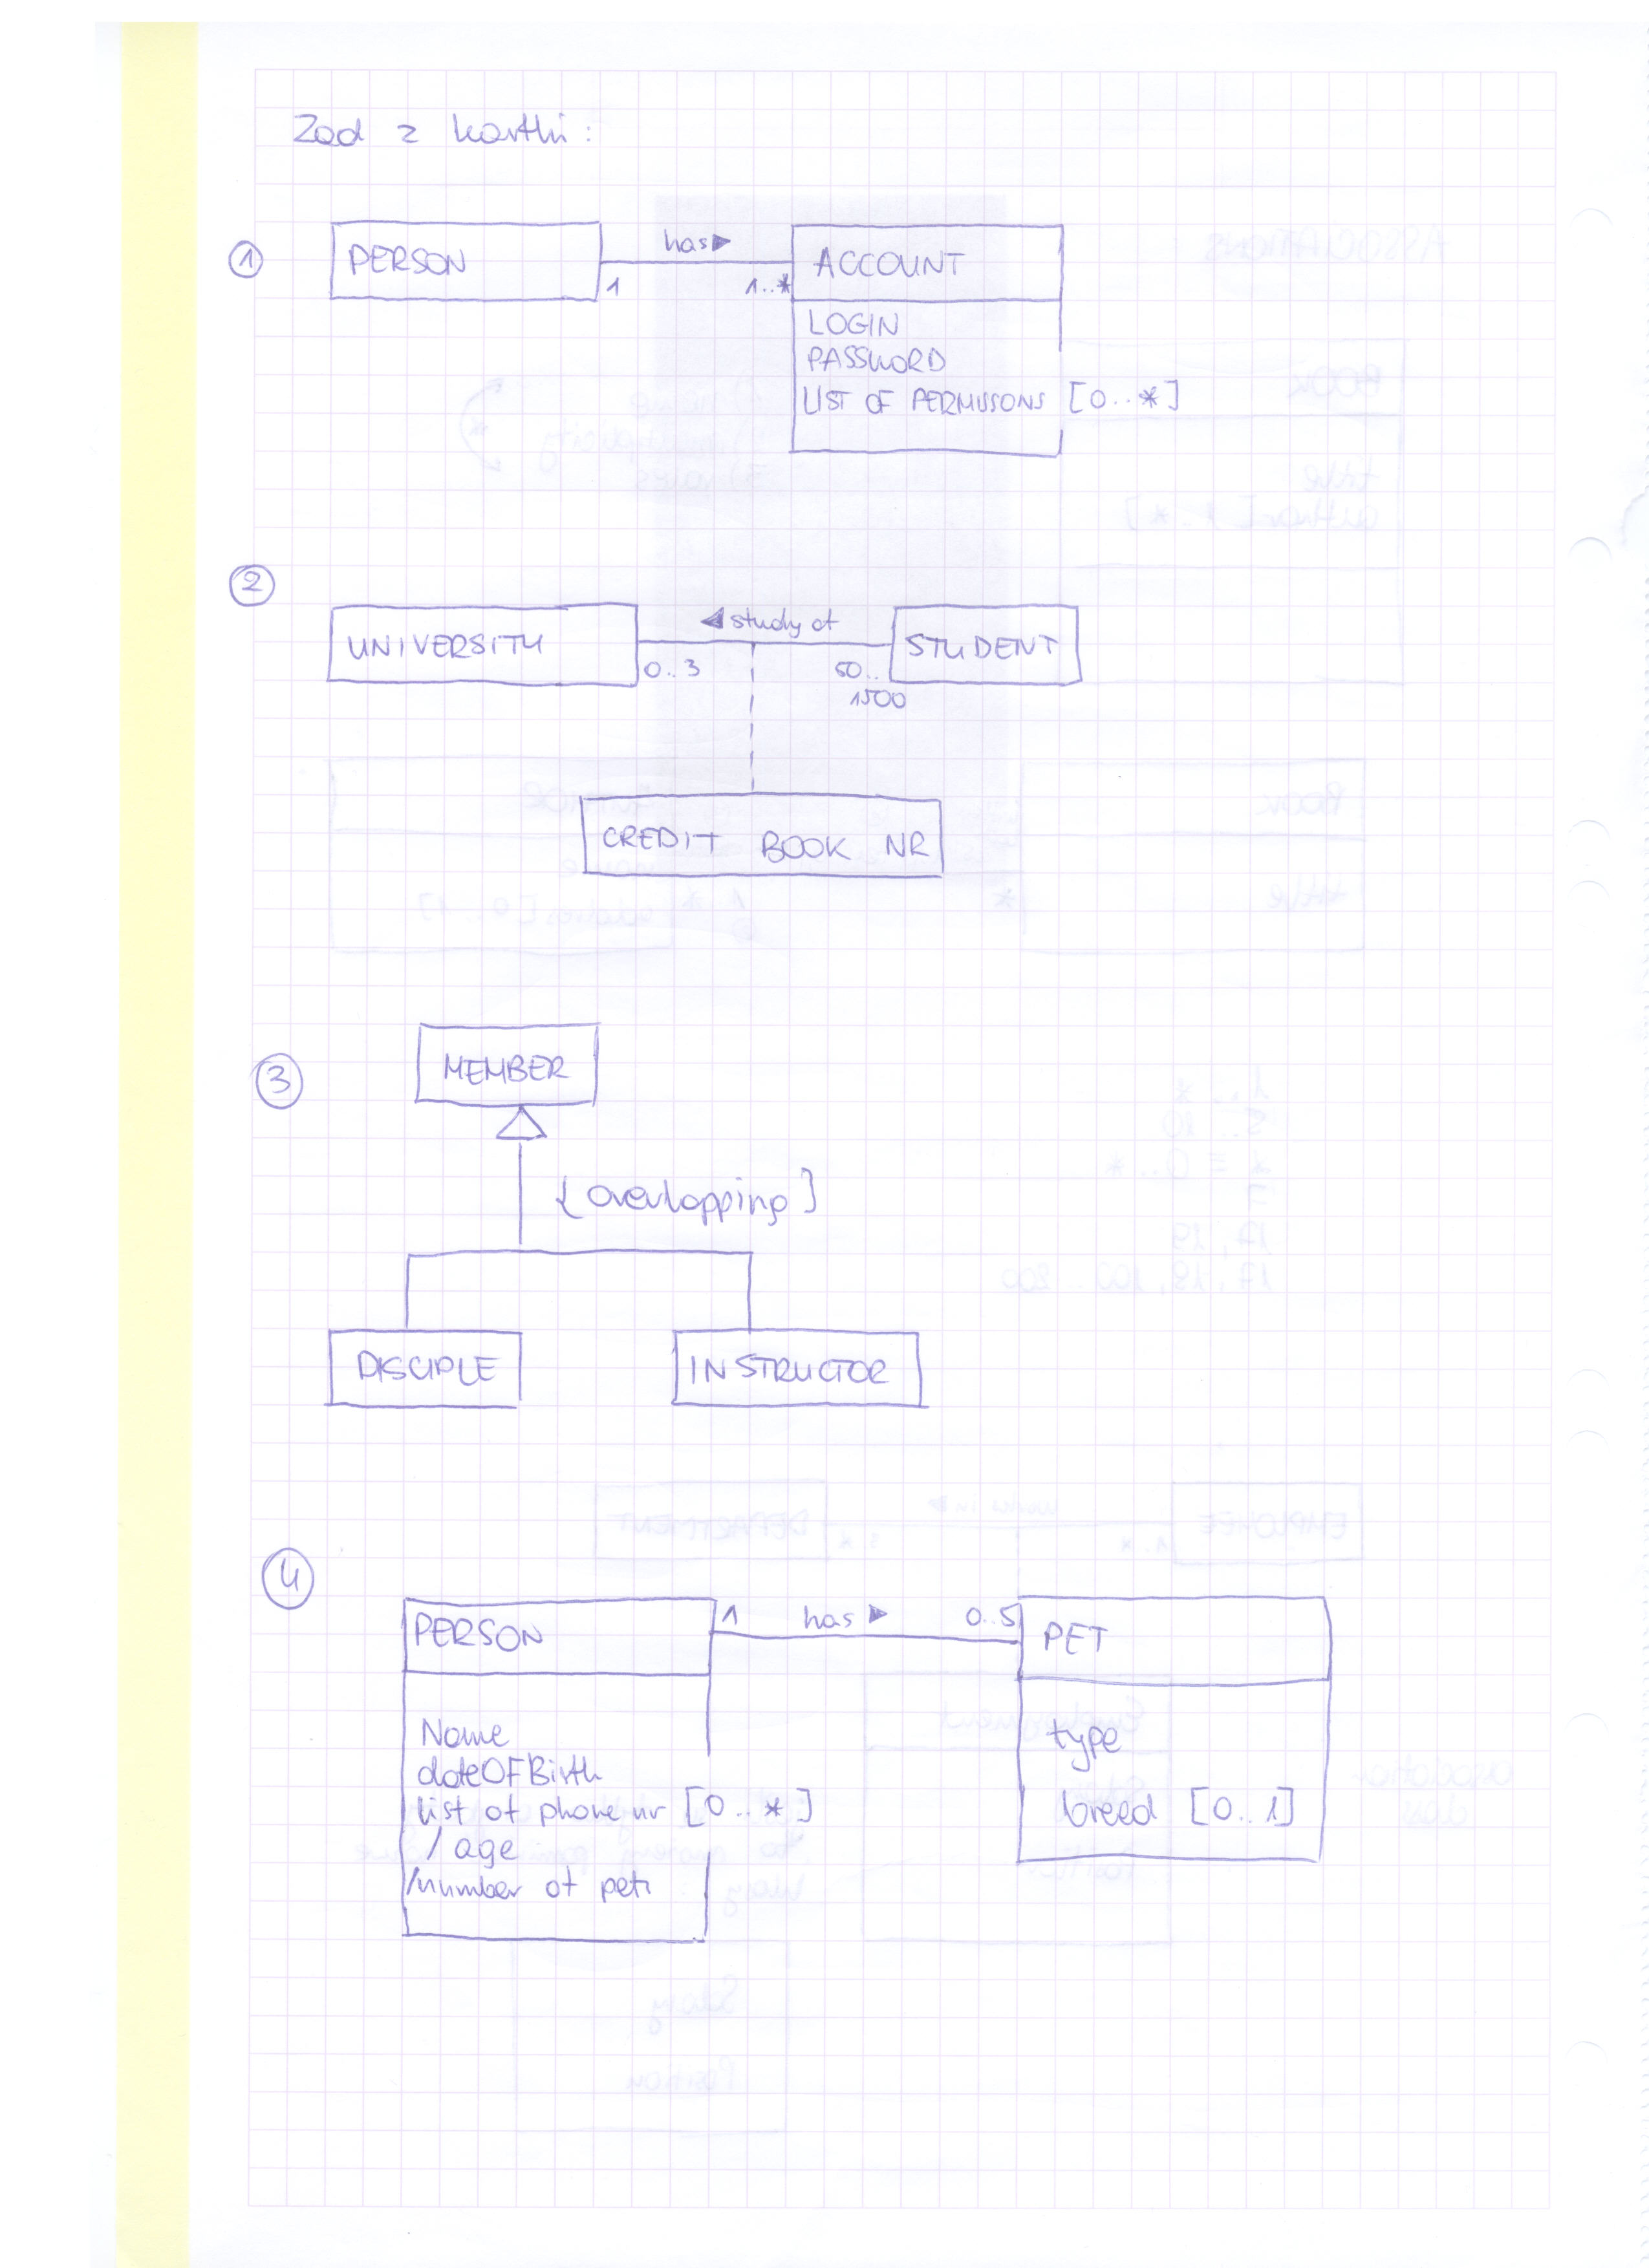 Zad z kartki:
1
PERSON
has ▶
1
1..*
ACCOUNT
LOGIN
PASSWORD
LIST OF PERMISSONS [0..*]
2
UNIVERSITY
◀ study at
0..3
50..
1500
STUDENT
CREDIT BOOK NR
3
MEMBER
{overlapping}
DISCIPLE
INSTRUCTOR
4
PERSON
1 has ▶ 0..5
PET
Name
dateOFBirth
list of phone nr [0..*]
/ age
/number of pets
type
breed [0..1]